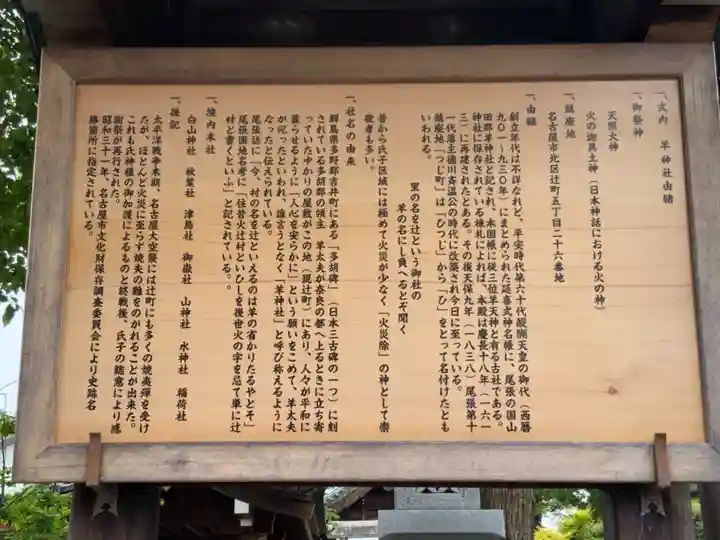 一、式内 羊神社由緒
一、御祭神
天照大神
火の迦具土神(日本神話における火の神)
一、鎮座地
名古屋市北区辻町五丁目二十六番地
一、由緒
創立年代は不詳なれど、平安時代第六十代醍醐天皇の御代(西暦
九〇一〜九三〇年)にまとめられた延喜式神名帳に、尾張の国山
田郡羊神社と記され、本国帳に従三位羊天神と有る古社である。
神社に保存されている棟札によれば、本殿は慶長十八年(一六一
三)に再建されたとある。その後天保九年(一八三八)尾張第十
一代藩主徳川斉温公の時代に改築され今日に至っている。
鎮座地「つじ町」は「ひつじ」から「ひ」をとって名付けたとも
いわれる。
里の名を辻という御社の
羊の名にし負へるとぞ聞く
昔から氏子区域には極めて火災が少なく「火災除」の神として崇
敬者も多い。
一、社名の由来
群馬県多野郡吉井町にある「多胡碑」(日本三古碑の一つ)に刻
されている多胡郡の領主 羊太夫が奈良の都へ上るときに立ち寄
っていたゆかりの屋敷がこの地(現辻町)にあり、人々が平和に
暮らせるように「人心を安らかに」という願いをこめて、羊太夫
が祀ったといわれ、誰言うとなく「羊神社」と呼び称えるように
なったと伝えられている。
尾張誌に「今、村の名を辻といえるのは羊の省かりたるやとぞ」
尾張国地名考に「往昔火辻村といひしを後世火の字を忌て単に辻
村と書くといふ」と記されている。
一、境内末社
白山神社 秋葉社 津島社 御嶽社 山神社 水神社 稲荷社
一、後記
太平洋戦争末期、名古屋大空襲には辻町にも多くの焼夷弾を受け
たが、ほとんど火災に至らず焼失の難をのがれることが出来た。
これも氏神様の御加護によるものと終戦後、氏子の総意により感
謝祭が再行された。
昭和三十一年、名古屋市文化財保存調査委員会により史蹟名
勝箇所に指定されている。